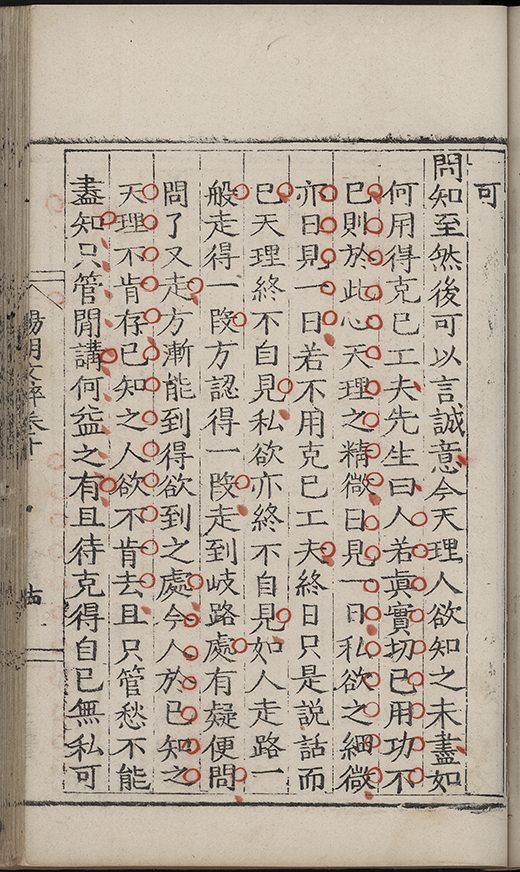 可
問知至然後可以言誠意今天理人欲知之未盡如
何用得克已工夫先生曰人若眞實切已用功不
已則於此心天理之精微日見一日私欲之細微
亦日見一日若不用克已工夫終日只是説話而
已天理終不自見私欲亦終不自見如人走路一
般走得一段方認得一段走到岐路處有疑便問
問了又走方漸能到得欲到之處今人於已知之
天理不肯存已知之人欲不肯去且只管愁不能
盡知只管閒講何益之有且待克得自已無私可
陽明文粹卷十